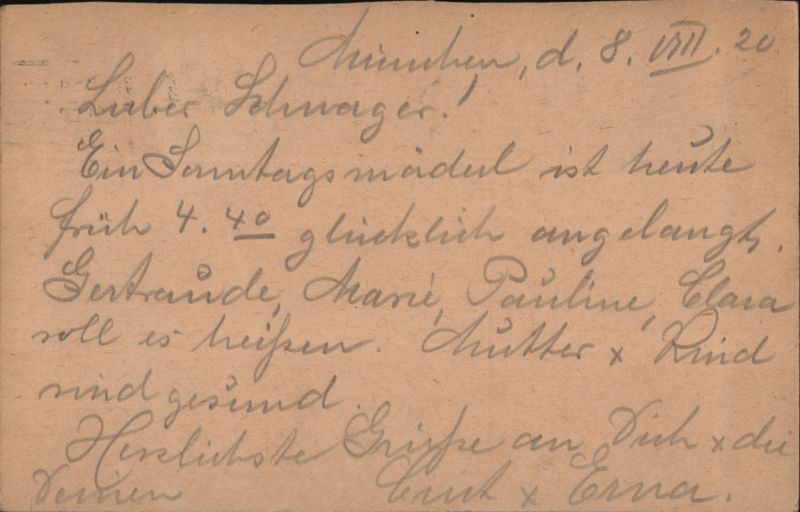 München, d. 8. VIII. 20.
Lieber Schwager!
Ein Sonntagsmäderl ist heute
früh 4.40 glücklich angelangt.
Gertraude, Marie, Pauline, Clara
soll es heißen. Mutter x Kind
sind gesund.
Herzlichste Grüße an Dich x die
Deinen Curt x Erna.